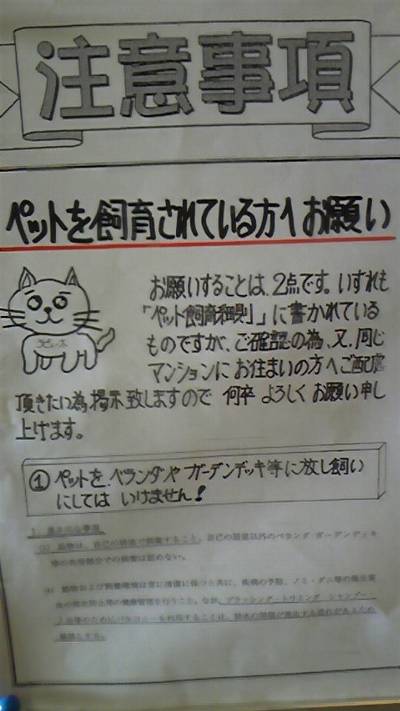 注意事項
ペットを飼育されている方へお願い
お願いすることは、2点です。いずれも
「ペット飼育細則」に書かれている
ものですが、ご確認の為、又、同じ
マンションにお住まいの方へご配慮
頂きたい為掲示致しますので 何卒 よろしくお願い申し
上げます。
① ペットを ベランダや ガーデンデッキ等に放し飼い
にしては いけません!
自己の居室以外のベランダ ガーデンデッキ
等の共用部分での飼育は認めない。